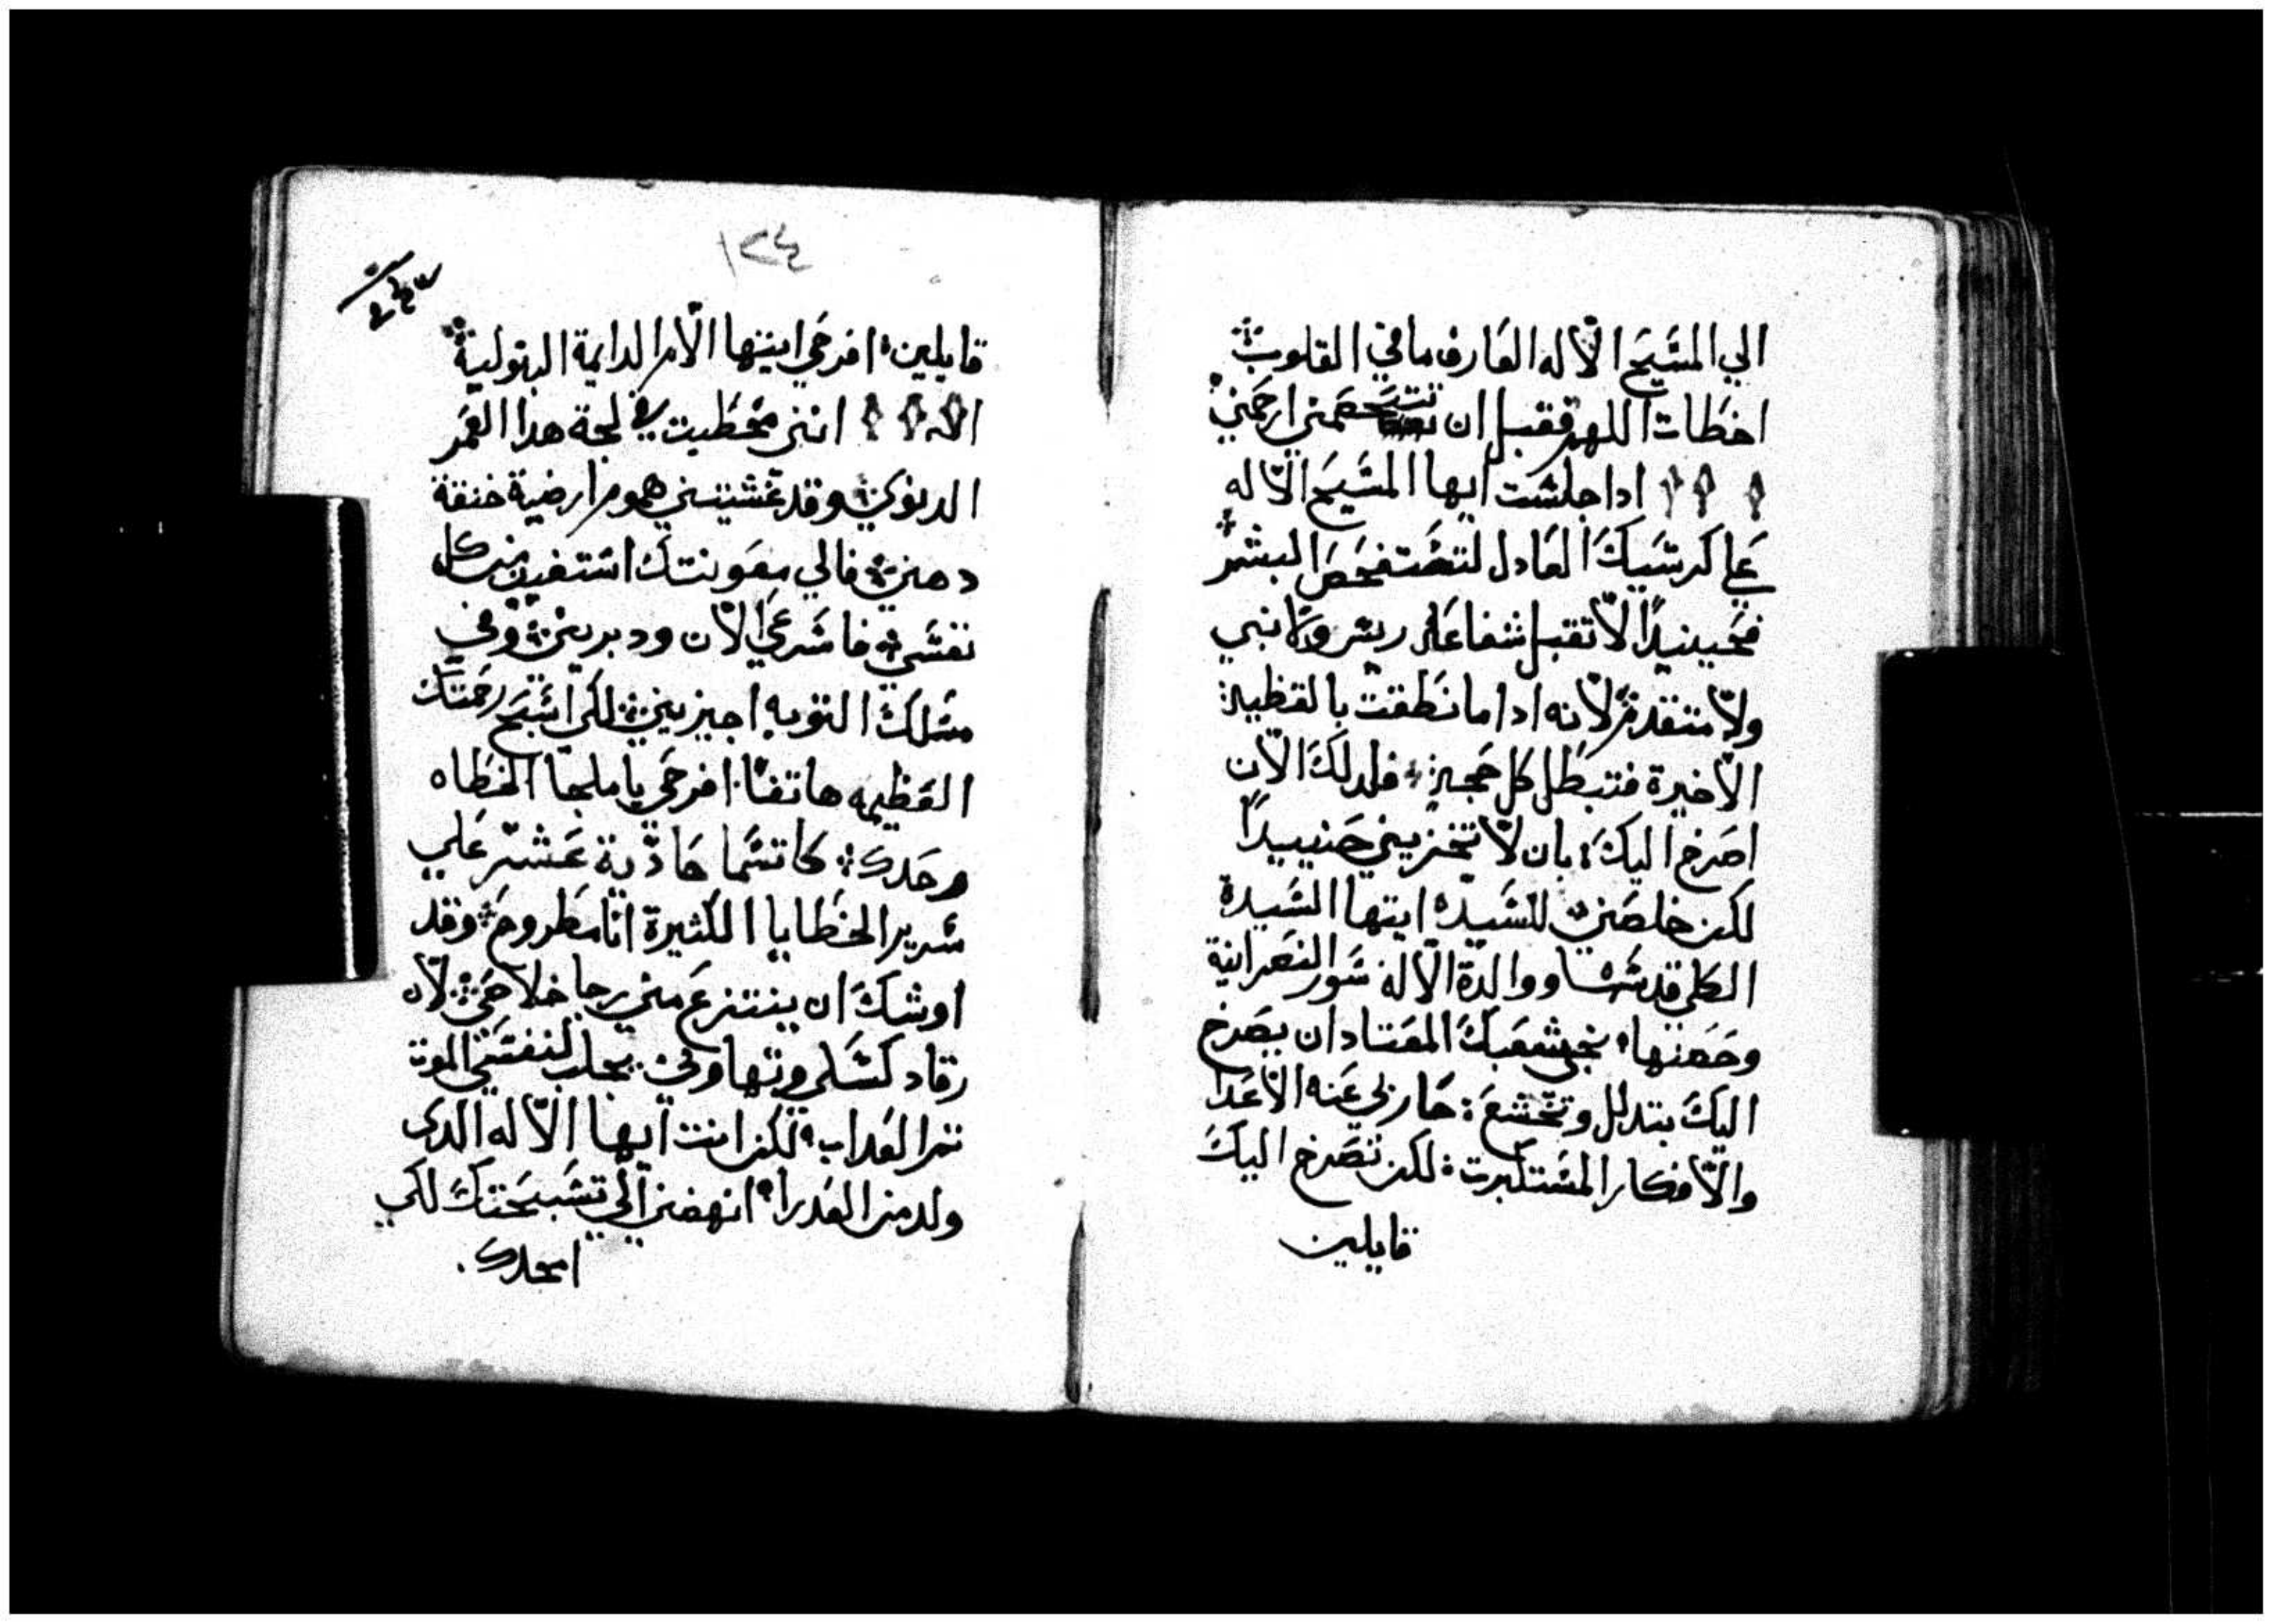 الي المسَيح الاله العَارف ما في القلوب
اخطات اللهم فقبل ان تتحَصمني ارحَمني
ادا جلسَت ايها المسَيح الاله
عَلي كرسَيك العَادل لتسَتفحَص البشر
فحَينيدًا لا تقبل شفاعَة ريس ولا نبي
ولا متقدم لانه ادا ما نطقت بالقظية
الاخيرة فتبطل كل حَجة فلدلك الان
اصَرخ اليك بان لا تخزيني حَنييدًا
لكن خلصَني للسَيدة ايتها السَيدة
الكلي قدسَها ووالدة الاله سَور النصَرانية
وحَصَنها نجي شعَبك المعَتاد ان يصَرخ
اليك بتدلل وتخشع حَاربي عَنه الاعَدا
والافكار المسَتكبرت لكن نصَرخ اليك
قايلين
١٢٤
قايلين افرحَي ايتها الام الدايمة البتولية
انني مخطيت في لجة هدا العَمر
الدنوي وقد غَشيتني هموم ارضية خنقة
دهني فالي معَونتك اسَتغيث من كل
نفسَي فاسَرعَي الان ودبريني وفي
مسَلك التوبه اجيزيني لكي اسَبح رحَمتك
العَظيمه هاتفًا افرحَي يا ملجا الخطاه
وحَدك كاتسَما حَادية عَشر عَلي
سَرير الخطايا الكثيرة انا مطروح وقد
اوشك ان ينتزع مني رجا خلاصَي لان
رقاد كسَلي وتهاوني يجلب لنفسَي الموت
تم العَداب لكن انت ايها الاله الدي
ولد من العَدرا انهضني الي تسَبيحَتك لكي
امجدك